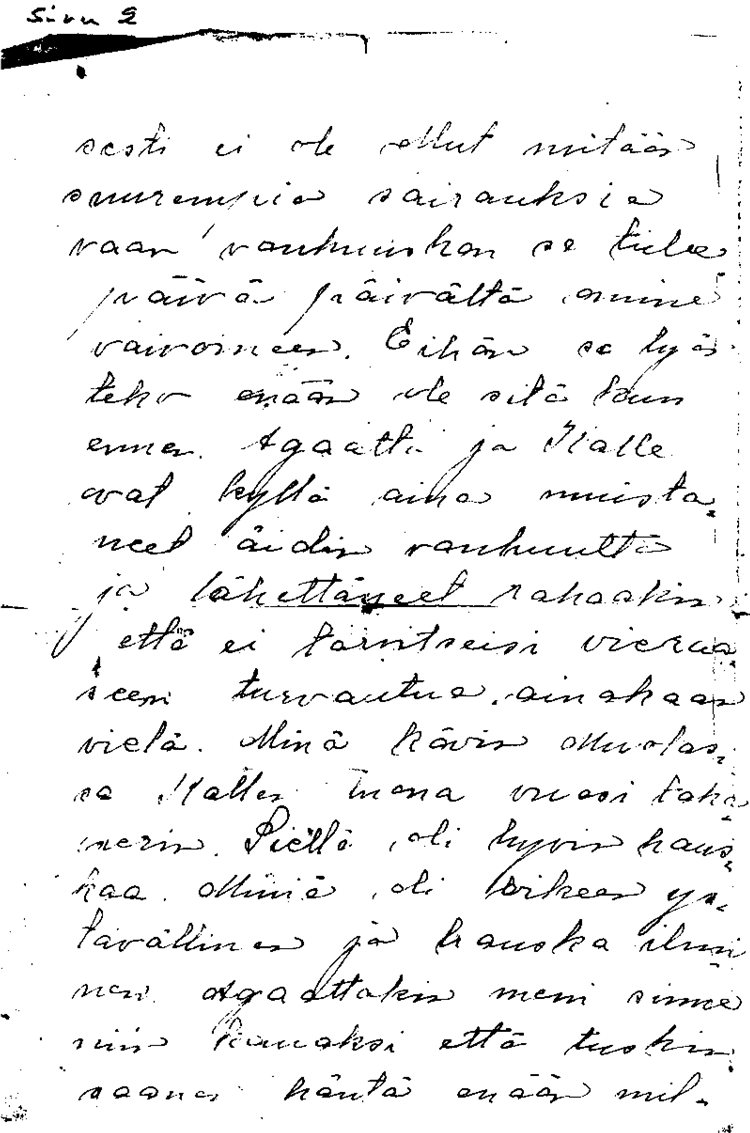 Sivu 2
sesti ei ole ollut mitään
suurempia sairauksia
vaan vanhuushan se tulee
päivä päivältä omine
vaivoineen. Eihän se työn
teko enään ole sitä kun
ennen. Agaatta ja Kalle
ovat kyllä aina muista-
neet äidin vanhuutta
ja lähettäneet rahaakin
että ei tarvitseisi vieraa
seen turvautua. ainakaan
vielä. Minä kävin Muolas-
sa Kallen tuona vuosi taka-
perin. Siellä oli hyvin haus-
kaa. Miniä oli oikeen ys-
tävällinen ja hauska ihmi
nen. Agaattakin meni sinne
niin kauaksi että tuskin
saanen häntä enään mil-